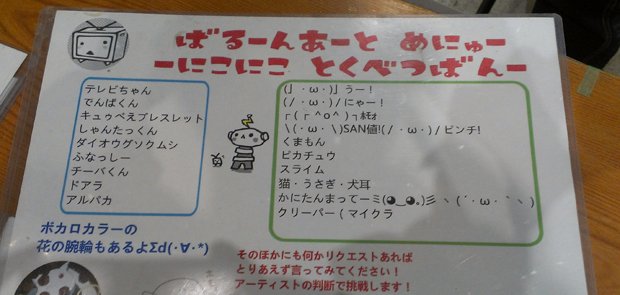 ばるーんあーと めにゅー
ーにこにこ とくべつばんー
テレビちゃん
でんぱくん
キュゥべえブレスレット
しゃんたっくん
ダイオウグソクムシ
ふなっしー
チーバくん
ドアラ
アルパカ
(」・ω・)」うー!
(/・ω・)/にゃー!
┌(┌ ^o^)┐ホモォ
\(・ω・\)SAN値!(/・ω・)/ピンチ!
くまもん
ピカチュウ
スライム
猫・うさぎ・犬耳
かにたんまってーミ(◕‿◕｡)彡 ヽ(´・ω・`ヽ)
クリーパー(マイクラ
ボカロカラーの
花の腕輪もあるよΣd(・∀・*)
そのほかにも何かリクエストあれば
とりあえず言ってみてください!
アーティストの判断で挑戦します!